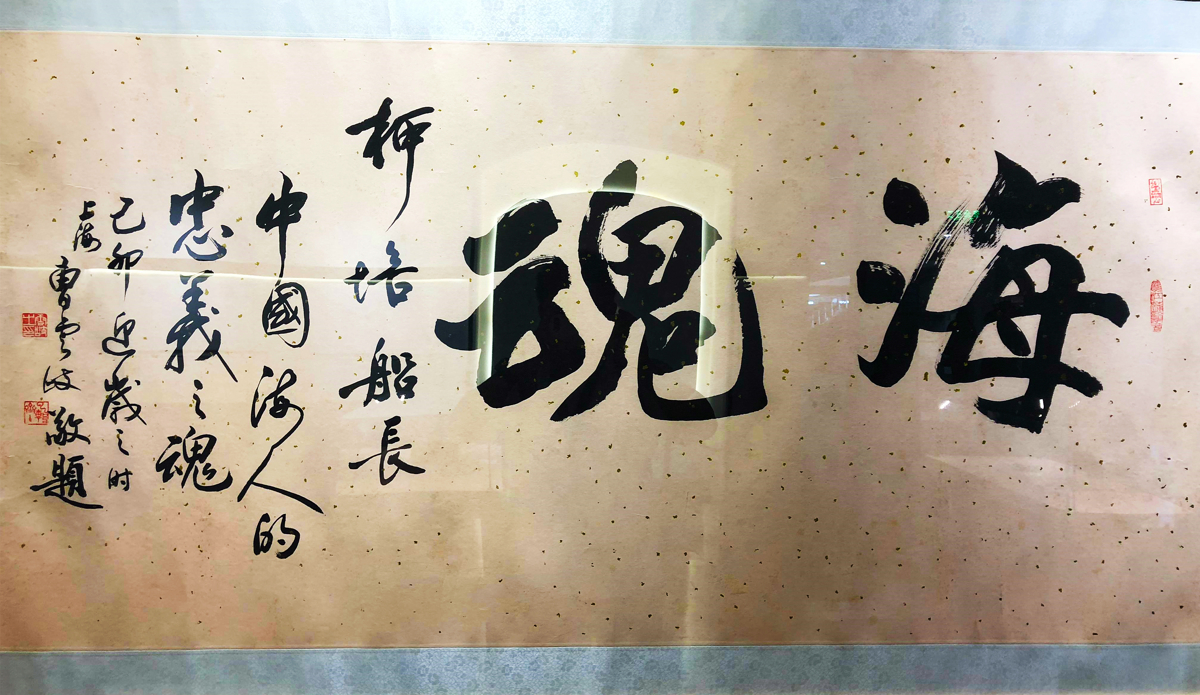 海魂
柳培船長
中國海人的
忠義之魂
己卯迎歲之时
上海曹雲岐敬題